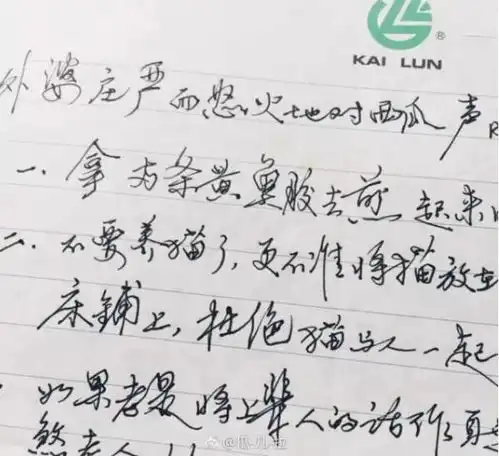 KAI LUN
外婆庄严而怒火地对西瓜声
一、拿去条黄鱼胶去煎起来
二、不要养猫了,更不准将猫放在
床铺上,杜绝猫与人一起
如果老是将上辈人的话作耳
煞老人